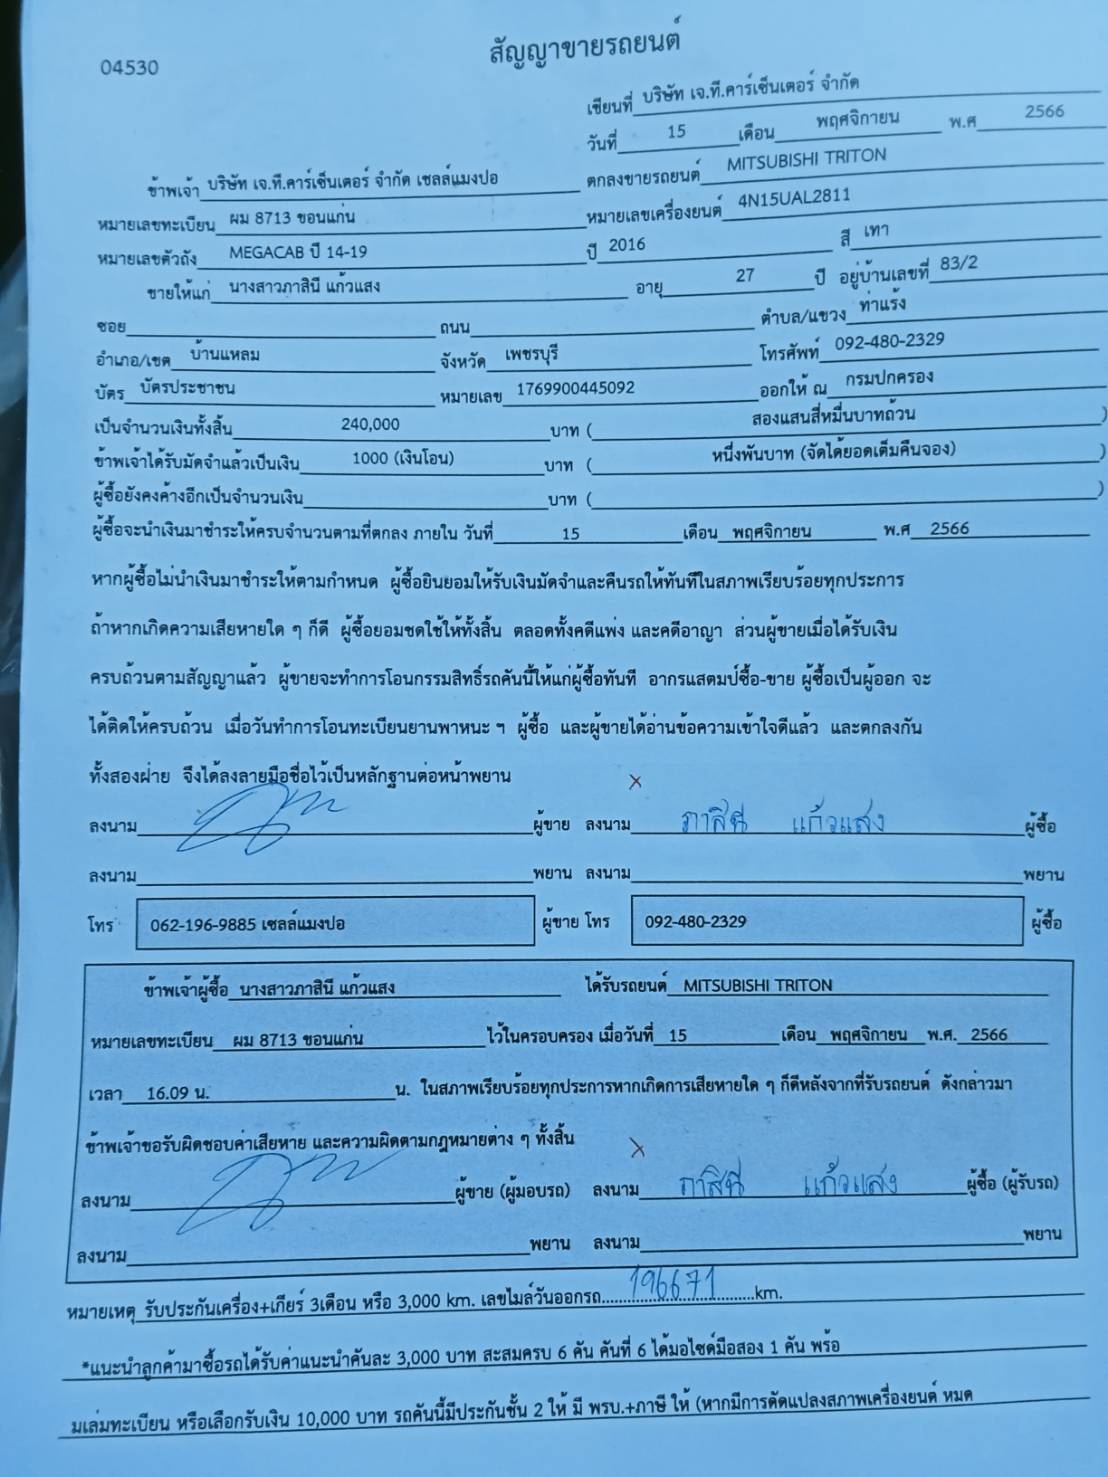 สัญญาขายรถยนต์
04530
เขียนที่ บริษัท เจ.ที.คาร์เซ็นเตอร์ จำกัด
วันที่ 15 เดือน พฤศจิกายน พ.ศ 2566
ข้าพเจ้า บริษัท เจ.ที.คาร์เซ็นเตอร์ จำกัด เซลล์แมงปอ ตกลงขายรถยนต์ MITSUBISHI TRITON
หมายเลขทะเบียน ผม 8713 ขอนแก่น หมายเลขเครื่องยนต์ 4N15UAL2811
หมายเลขตัวถัง MEGACAB ปี 14-19 ปี 2016 สี เทา
ขายให้แก่ นางสาวภาสินี แก้วแสง อายุ 27 ปี อยู่บ้านเลขที่ 83/2
ซอย ถนน ตำบล/แขวง ท่าแร้ง
อำเภอ/เขต บ้านแหลม จังหวัด เพชรบุรี โทรศัพท์ 092-480-2329
บัตร บัตรประชาชน หมายเลข 1769900445092 ออกให้ ณ กรมปกครอง
เป็นจำนวนเงินทั้งสิ้น 240,000 บาท ( สองแสนสี่หมื่นบาทถ้วน )
ข้าพเจ้าได้รับมัดจำแล้วเป็นเงิน 1000 (เงินโอน) บาท ( หนึ่งพันบาท (จัดได้ยอดเต็มคืนจอง) )
ผู้ซื้อยังคงค้างอีกเป็นจำนวนเงิน บาท ( )
ผู้ซื้อจะนำเงินมาชำระให้ครบจำนวนตามที่ตกลง ภายใน วันที่ 15 เดือน พฤศจิกายน พ.ศ 2566
หากผู้ซื้อไม่นำเงินมาชำระให้ตามกำหนด ผู้ซื้อยินยอมให้รับเงินมัดจำและคืนรถให้ทันทีในสภาพเรียบร้อยทุกประการ
ถ้าหากเกิดความเสียหายใด ๆ ก็ดี ผู้ซื้อยอมชดใช้ให้ทั้งสิ้น ตลอดทั้งคดีแพ่ง และคดีอาญา ส่วนผู้ขายเมื่อได้รับเงิน
ครบถ้วนตามสัญญาแล้ว ผู้ขายจะทำการโอนกรรมสิทธิ์รถคันนี้ให้แก่ผู้ซื้อทันที อากรแสตมป์ซื้อ-ขาย ผู้ซื้อเป็นผู้ออก จะ
ได้ติดให้ครบถ้วน เมื่อวันทำการโอนทะเบียนยานพาหนะ ฯ ผู้ซื้อ และผู้ขายได้อ่านข้อความเข้าใจดีแล้ว และตกลงกัน
ทั้งสองฝ่าย จึงได้ลงลายมือชื่อไว้เป็นหลักฐานต่อหน้าพยาน
ลงนาม ผู้ขาย ลงนาม ภาสินี แก้วแสง ผู้ซื้อ
ลงนาม พยาน ลงนาม พยาน
โทร 062-196-9885 เซลล์แมงปอ ผู้ขาย โทร 092-480-2329 ผู้ซื้อ
ข้าพเจ้าผู้ซื้อ นางสาวภาสินี แก้วแสง ได้รับรถยนต์ MITSUBISHI TRITON
หมายเลขทะเบียน ผม 8713 ขอนแก่น ไว้ในครอบครอง เมื่อวันที่ 15 เดือน พฤศจิกายน พ.ศ. 2566
เวลา 16.09 น. น. ในสภาพเรียบร้อยทุกประการหากเกิดการเสียหายใด ๆ ก็ดีหลังจากที่รับรถยนต์ ดังกล่าวมา
ข้าพเจ้าขอรับผิดชอบค่าเสียหาย และความผิดตามกฎหมายต่าง ๆ ทั้งสิ้น
ลงนาม ผู้ขาย (ผู้มอบรถ) ลงนาม ภาสินี แก้วแสง ผู้ซื้อ (ผู้รับรถ)
ลงนาม พยาน ลงนาม พยาน
หมายเหตุ รับประกันเครื่อง+เกียร์ 3เดือน หรือ 3,000 km. เลขไมล์วันออกรถ 196671 km.
*แนะนำลูกค้ามาซื้อรถได้รับค่าแนะนำคันละ 3,000 บาท สะสมครบ 6 คัน คันที่ 6 ได้มอไซด์มือสอง 1 คัน พร้อ
มเล่มทะเบียน หรือเลือกรับเงิน 10,000 บาท รถคันนี้มีประกันชั้น 2 ให้ มี พรบ.+ภาษี ให้ (หากมีการดัดแปลงสภาพเครื่องยนต์ หมด